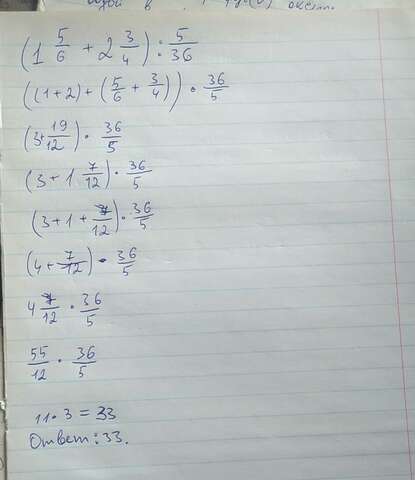 (1 5/6 + 2 3/4) : 5/36
((1+2) + (5/6 + 3/4)) · 36/5
(3+19/12) · 36/5
(3 + 1 7/12) · 36/5
(3+1+7/12) · 36/5
(4+7/12) · 36/5
4 7/12 · 36/5
55/12 · 36/5
11·3=33
Ответ: 33.